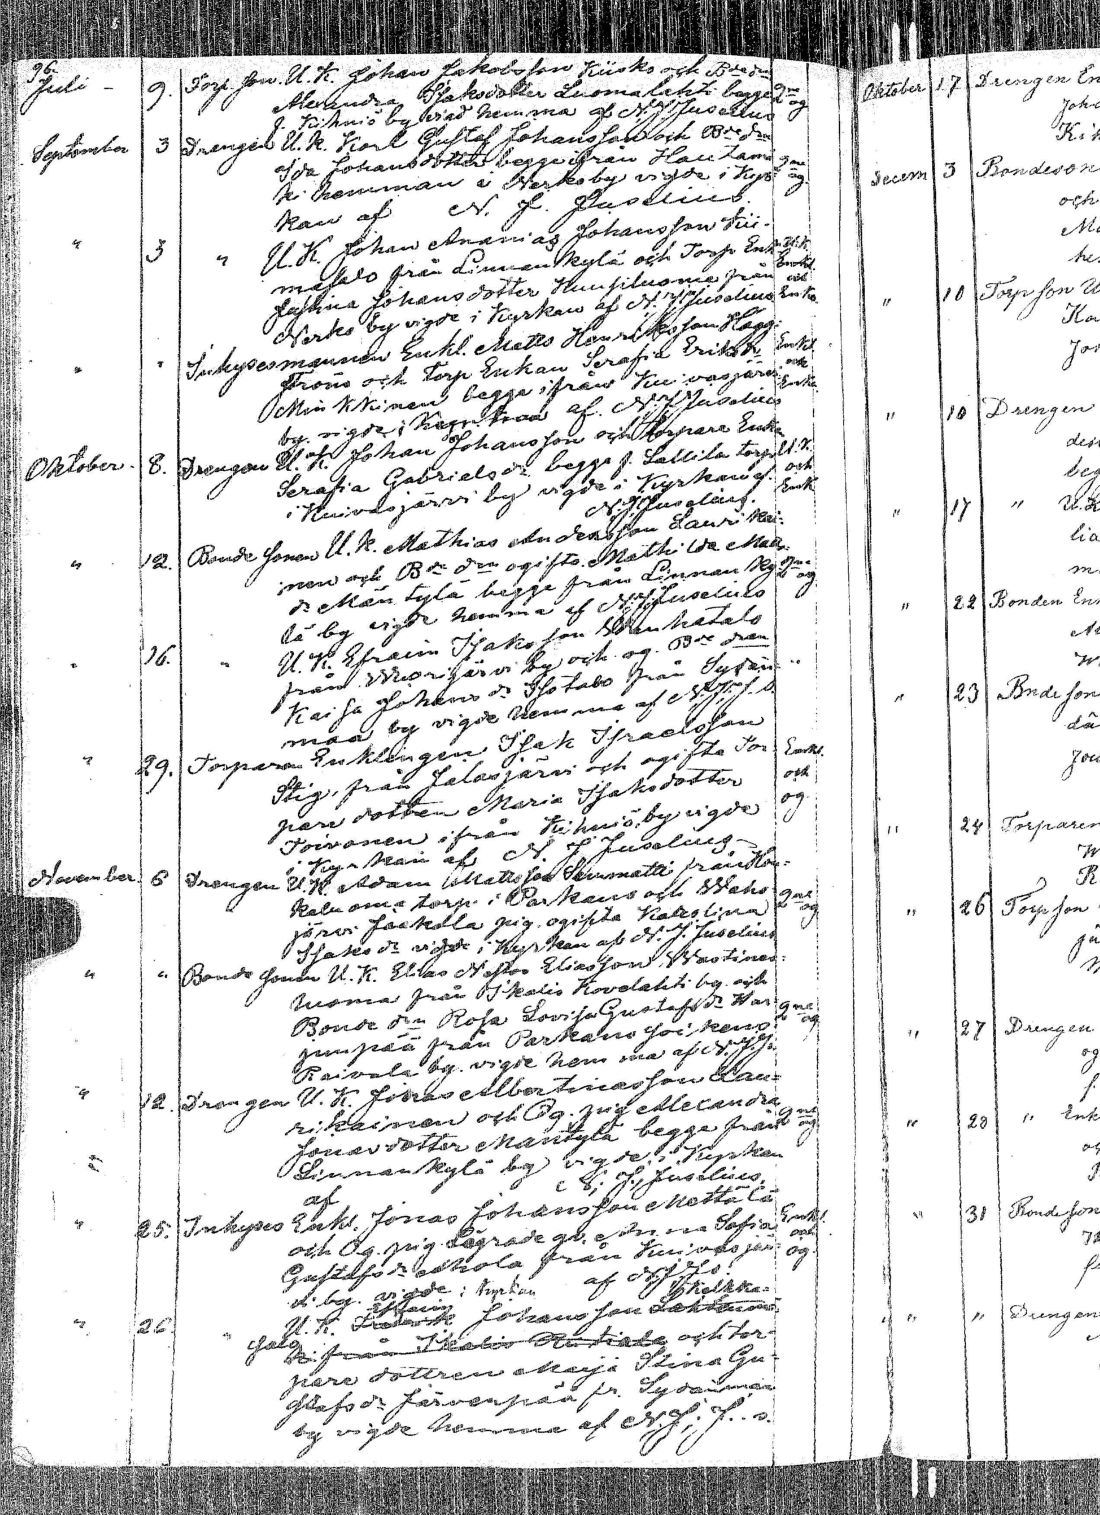 96.
Juli - 9. Torp. son. U. K. Johan Jakobsson Kiisko och Bde dn
Alexandra Isaksdotter Luomalahti begge
f. Kihniö by viad hemma af N. J. Juselius gme og
September 3 Drengen U. K. Karl Gustaf Johansson och Bde dn
Ida Johansdotter begge ifrån Hautamä
ki hemman i Nerkoby vigde i Kyr- gme og.
kan af N. J. Juselius.
" 3 " U. K. Johan Ananias Johansson Kii-
masalo från Linnankylä och Torp Enk U. K.
Justina Johansdotter från Enkl. och
Nerko by vigde i Kyrkan af N. J. Juselius Enka.
" " Inhysesmannen Enkl. Matts Henriksson Hägg-
ström och Torp Enkan Serafia Eriksdr Enkl
Minkkinen begge ifrån Kuivasjärvi och Enka.
by. vigde i Kyrkan af. N. J. Juselius
Oktober. 8. Drengen U. K. Johan Johansson och torpare Enka
Serafia Gabrielsdr. begge f. Lattila torp U. K. och
i Kuivasjärvi by vigde i Kyrkan af. Enk
N. J. Juselius.
" 12. Bonde sonen U. K. Mathias Andersson Laurikai-
nen och Bde dn ogifta Mathilda Matts-
dr Mäntylä begge från Linnanky gme og
lä by vigde hemma af N. J. Juselius
" 16. " U. K. Efraim Isaksson Wanhatalo
från Wuorijärvi by och og. Bde dren
Kaisa Johansdr Isotalo från Sydän "
maa by vigde hemma af N. J. J. s.
" 29. Torparen Enklingen Isak Israelsson
Stig, från Jalasjärvi och ogifta Tor- Enkl.
pare dottren Maria Isaksdotter och
Toivonen ifrån Kihniö by vigde og.
i Kyrkan af N. J. Juselius
November. 6 Drengen U. K. Adam Mattsson från
Kaluoma torp i Parkano och Waho
järvi Jaakola pig. ogifta Karolina gme og
Isaksdr vigde i Kyrkan af N. J. Juselius
" " Bonde sonen U. K. Elias Nestor Eliasson Wastinas-
luoma från Ikalis Kovelahti by. och
Bonde dn Rosa Lovisa Gustafsdr Har- gme
junpää från Parkano Sockens og
Raivala by. vigde hemma af N. J. J.
" 12. Drengen U. K. Jonas Albertinasson Lau-
rikainen och Og. pig Alexandra gme
Jonasdotter Mäntylä begge från og
Linnankylä by vigde i Kyrkan
af N. J. Juselius.
" 25. Inhyses Enkl. Jonas Johansson Mettälä Enkl.
och Og. pig. Lägrade qv. Anna Sofia och
Gustafsdr Ahola från Kuivasjär- og.
vi by. vigde i Kyrkan af N. J. Js.
" 26. " U. K. Efraim Johansson
från Ikalis och tor-
pare dottren Maja Stina Gu-
stafsdr Järvenpää fr. Sydänmaa
by vigde hemma af N. J. J. s.
Oktober 17 Drengen En
Joha
Kih
Decem 3 Bondeson
och
Ma
he
" 10 Torp son U
Ka
Jo
" 10 Drengen
des
beg
" 17 " U. K
lia
m
" 22 Bonden En
" 23 Bnde son
dä
Jo
" 24 Torparen
W
R
" 26 Torp son
jä
" 27 Drengen
og
f
" 28 " Enk
och
" 31 Bonde son
" " Drengen